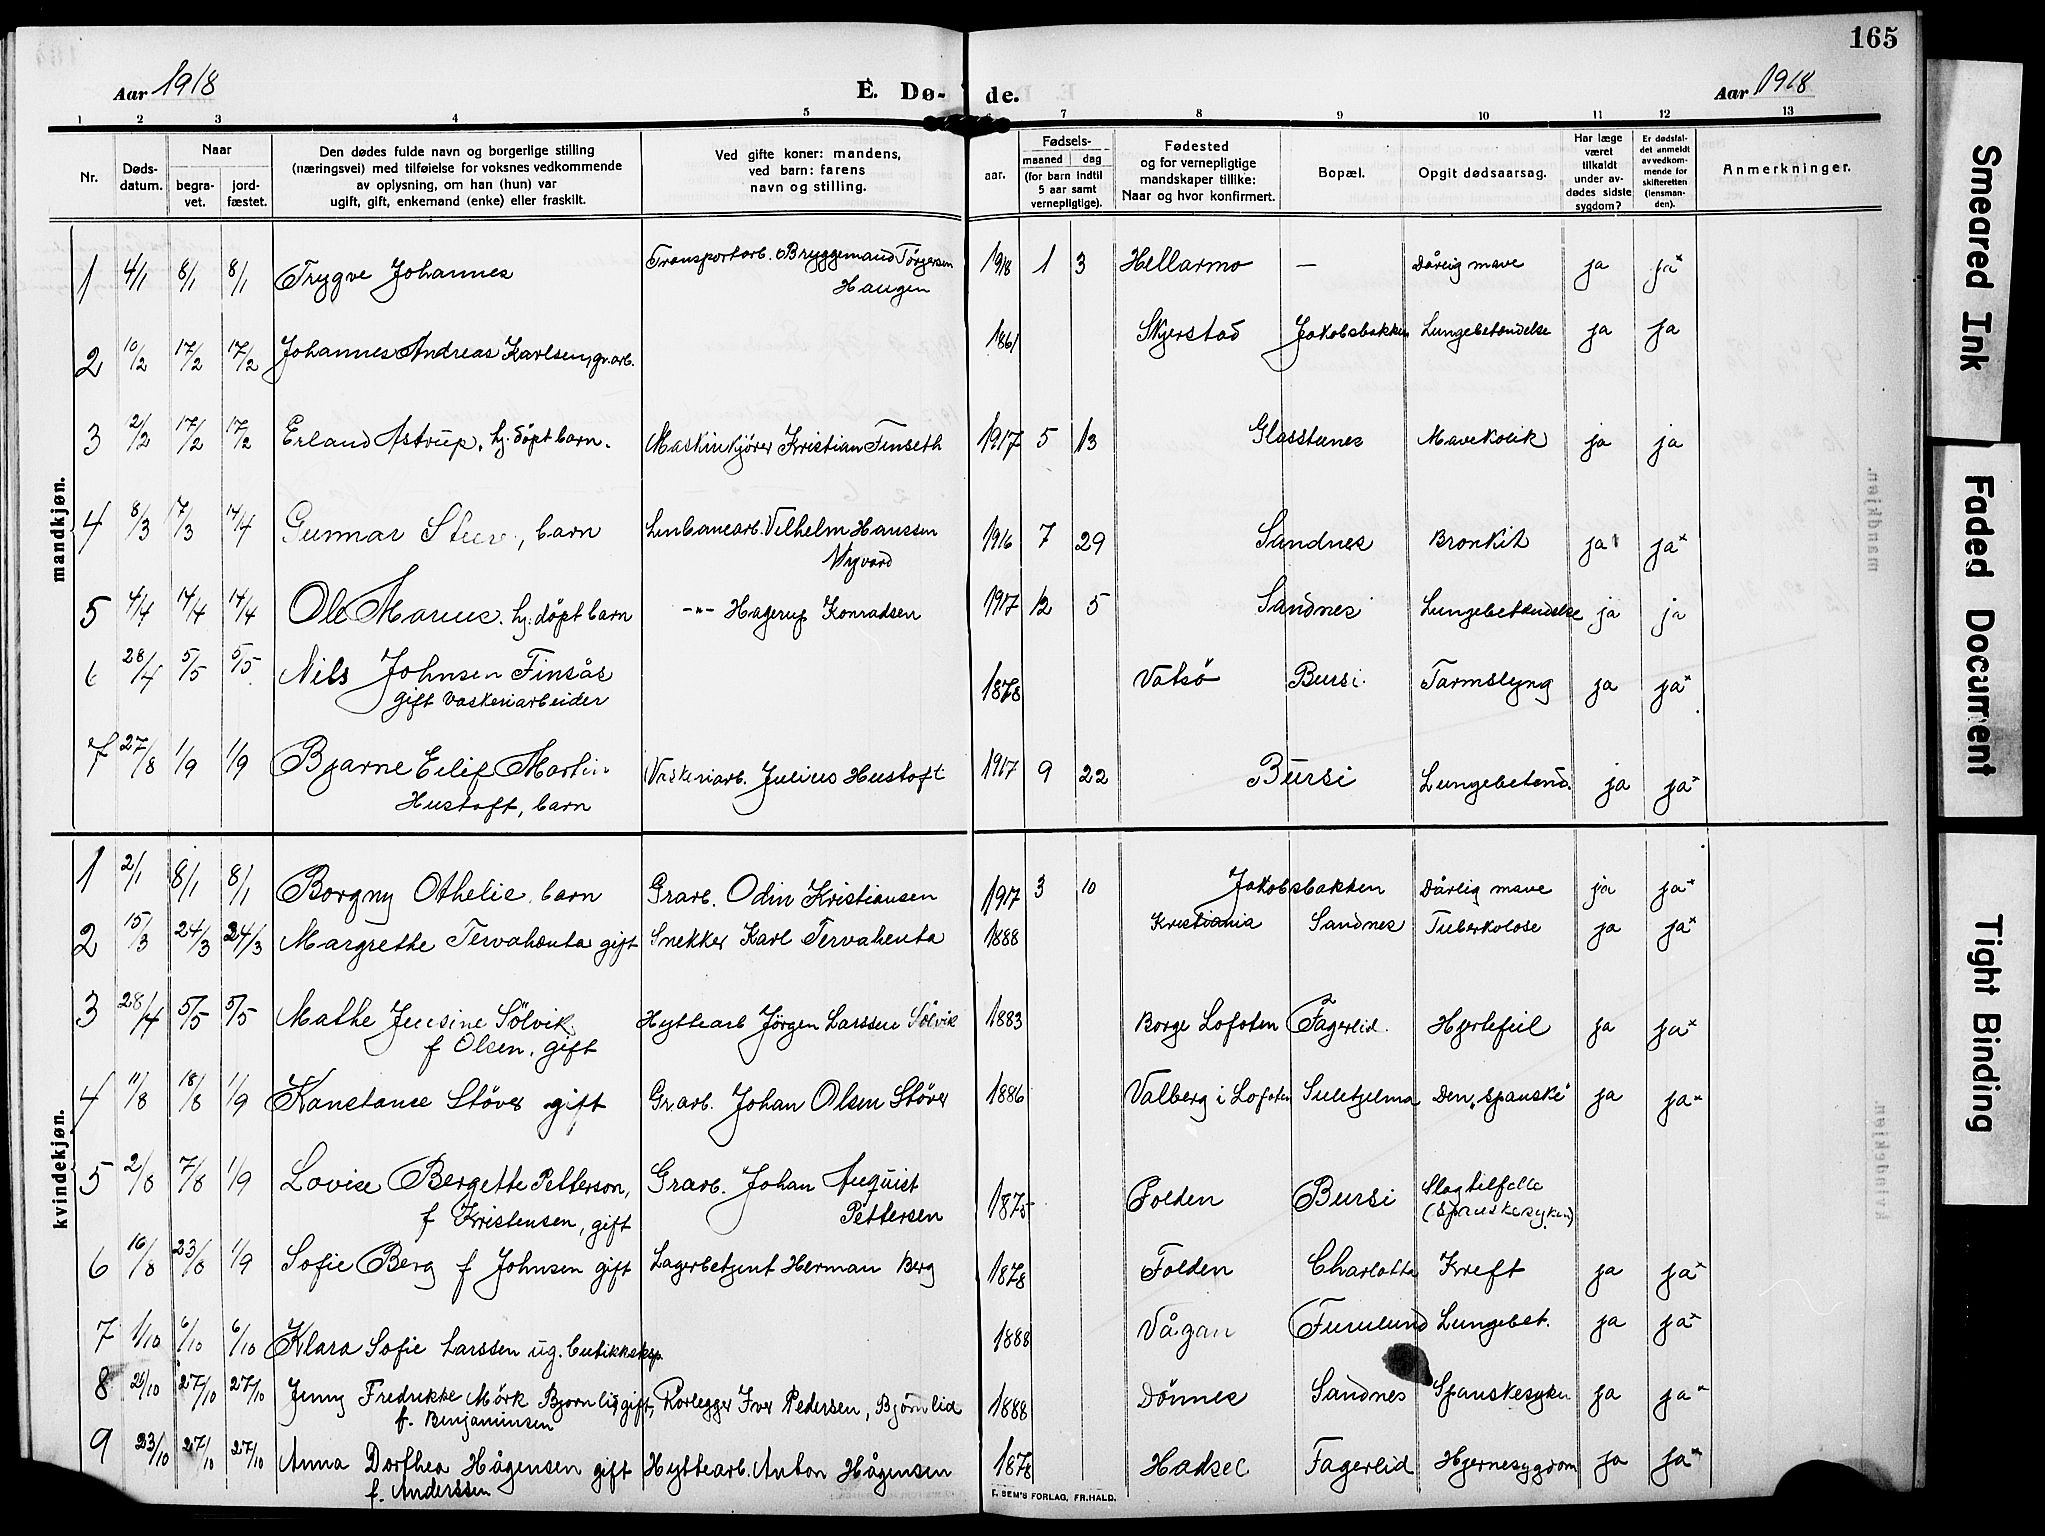 165
Aar 1918
E. Dø-
de.
Aar 1918
1 2 3 4 5 6 7 8 9 10 11 12 13
Nr.
Døds-
datum.
Naar
begra-
vet.
jord-
fæstet.
Den dødes fulde navn og borgerlige stilling
(næringsvei) med tilføielse for voksnes vedkommende
av oplysning, om han (hun) var
ugift, gift, enkemand (enke) eller fraskilt.
Ved gifte koner: mandens,
ved barn: farens
navn og stilling.
Fødsels-
aar.
maaned dag
(for barn indtil
5 aar samt
vernepligtige).
Fødested
og for vernepligtige
mandskaper tillike:
Naar og hvor konfirmert.
Bopæl.
Opgit dødsaarsag.
Har læge
været
tilkaldt
under av-
dødes sidste
sygdom?
Er dødsfal-
det anmeldt
av vedkom-
mende for
skifteretten
(lensman-
den).
Anmerkninger.
mandkjøn.
1 4/1 8/1 8/1 Trygve Johannes Transportarb. Bryggemand Törgersen 1918 1 3 Hellarmo — Dårlig mave ja ja*
Haugen
2 10/2 17/2 17/2 Johannes Andreas Karlsen, gr.arb. 1861 Skjerstad Jakobsbakken Lungebetændelse ja ja
3 2/2 17/2 17/2 Erland Astrup, hj. döpt barn. Maskinkjörer Kristian Finseth 1917 5 13 Glasstunes Mavekolik ja ja
4 8/3 17/3 14/4 Gunnar, barn Linbanearb. Vilhelm Hanssen 1916 7 29 Sandnes Bronkit ja ja*
Nyvard
5 4/4 14/4 14/4 Ole Marius. hj. döpt barn -"- Hagerup Konradsen 1917 12 5 Sandnes Lungebetændelse ja ja
6 28/4 5/5 5/5 Nils Johnsen Finsås 1878 Vatsö Bursi. Tarmslyng ja ja*
gift vaskeriarbeider
7 27/8 1/9 1/9 Bjarne Eilif Martin Vaskeriarb. Julius Hustoft 1917 9 22 Bursi Lungebetend. ja ja*
Hustoft, barn
kvindekjøn.
1 2/1 8/1 8/1 Borgny Othelie, barn Grarb. Odin Kristiansen 1917 3 10 Jakobsbakken Dårlig mave ja ja*
2 15/3 24/3 24/3 Margrethe Tervahauta gift Snekker Karl Tervahauta 1888 Kristiania Sandnes Tuberkolose ja ja*
3 28/4 5/5 5/5 Mathe Jensine Sölvik Hyttearb Jörgen Larssen Sölvik 1883 Borge Lofoten Fagerlid. Hjertefeil ja ja*
f Olsen, gift
4 11/8 18/8 1/9 Konstanse Stöver gift Grarb. Johan Olsen Stöver 1886 Valberg i Lofoten Sulitjelma Den „spanske" ja ja*
5 2/8 7/8 1/9 Lovise Bergette Petterson, Grarb. Johan Auquist 1875 Folden Bursi Slagtilfelle
f Kristensen, gift Pettersen (Spanskesyken)
6 16/8 23/8 1/9 Sofie Berg f Johnsen gift Lagerbetjent Herman Berg 1878 Folden Charlotta Kreft ja ja*
7 1/10 6/10 6/10 Klara Sofie Larssen ug. butikkeksp. 1888 Vågan Furulund Lungebet. ja ja*
8 21/10 27/10 27/10 Jenny Fredrikke Mörk Bjornlid, gift, Rorlegger Iver Pedersen, Bjørnlid 1888 Dönnes Sandnes Spanskesyken ja ja*
f. Benjaminsen
9 23/10 27/10 27/10 Anna Dorthea Hågensen gift Hyttearb. Anton Hågensen 1878 Hadsel Fagerlid Hjernesygdom ja ja*
f. Anderssen
F. BEM'S FORLAG, FR.HALD.
Smeared Ink
Faded Document
Tight Binding